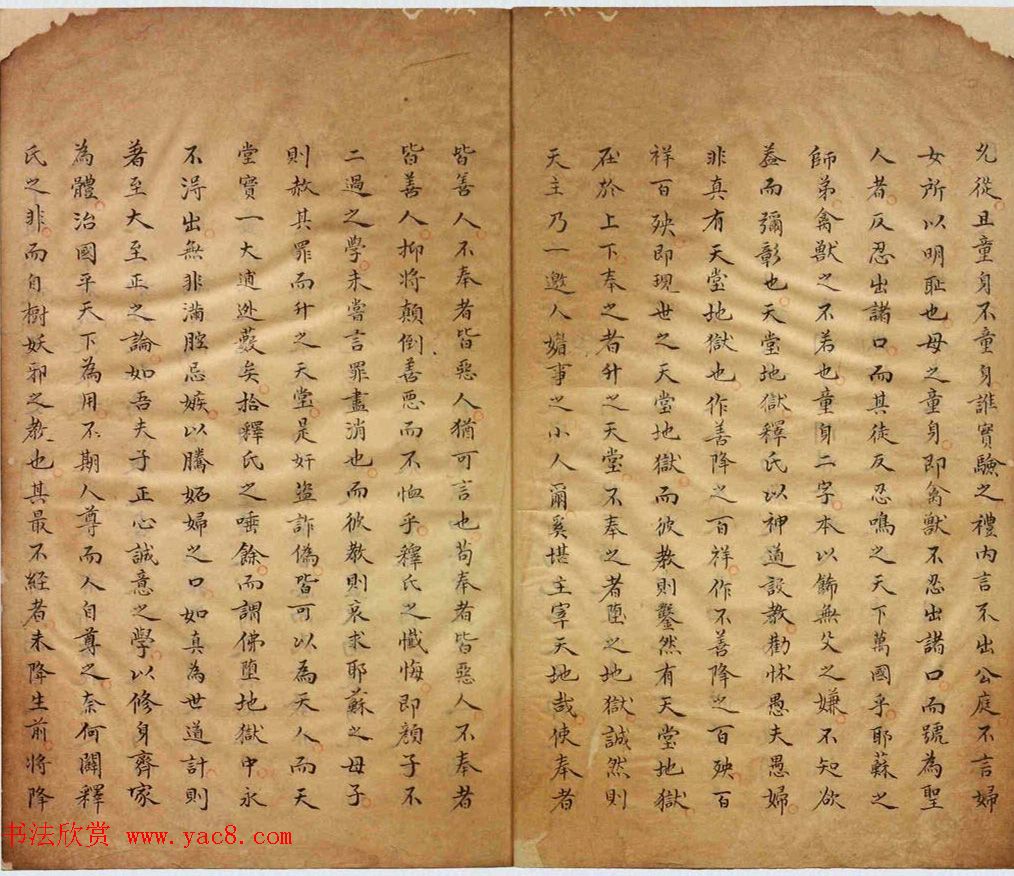 允從且童身不童身誰實驗之禮內言不出公庭不言婦
女所以明恥也母之童身即禽獸不忍出諸口而號為聖
人者反忍出諸口而其徒反忍鳴之天下萬國乎耶蘇之
師弟禽獸之不若也童身二字本以飾無父之嫌不知欲
葢而彌彰也天堂地獄釋氏以神道設教勸怵愚夫愚婦
非真有天堂地獄也作善降之百祥作不善降之百殃百
祥百殃即現世之天堂地獄而彼教則鑿然有天堂地獄
在於上下奉之者升之天堂不奉之者墮之地獄誠然則
天主乃一邀人媚事之小人爾奚堪主宰天地哉使奉者
皆善人不奉者皆惡人猶可言也苟奉者皆惡人不奉者
皆善人抑將顛倒善惡而不恤乎釋氏之懺悔即顏子不
二過之學未嘗言罪盡消也而彼教則哀求耶蘇之母子
則赦其罪而升之天堂是奸盜詐偽皆可以為天人而天
堂實一大逋逃藪矣拾釋氏之唾餘而謂佛墮地獄中永
不得出無非滿腔忌嫉以騰妬婦之口如真為世道計則
著至大至正之論如吾夫子正心誠意之學以修身齊家
為體治國平天下為用不期人尊而人自尊之奈何闢釋
氏之非而自樹妖邪之教也其最不経者未降生前將降
书法欣赏 www.yac8.com